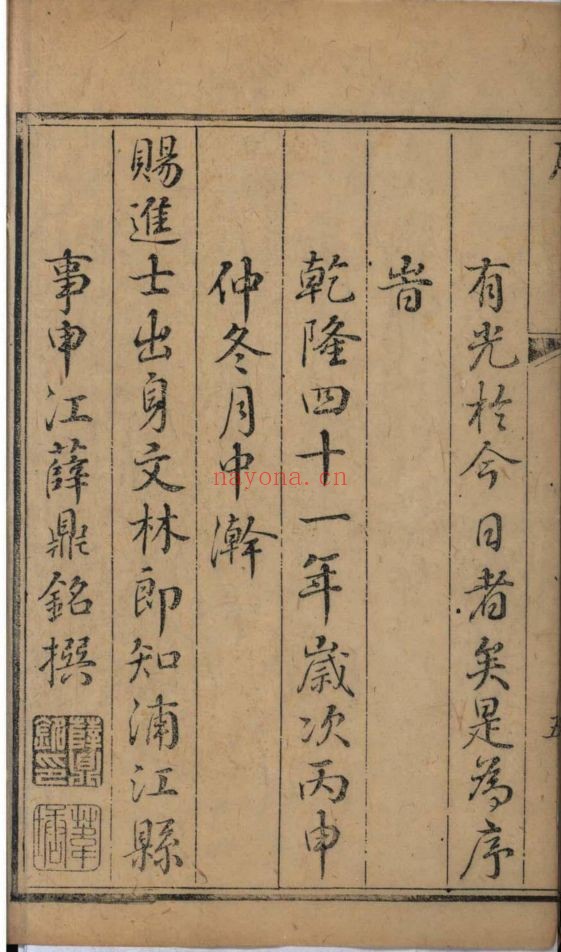 有光於今日者矣是為序
旹
乾隆四十一年歲次丙申
仲冬月中澣
賜進士出身文林郎知浦江縣
事申江薛鼎銘撰
薛鼎銘印
nayona.cn